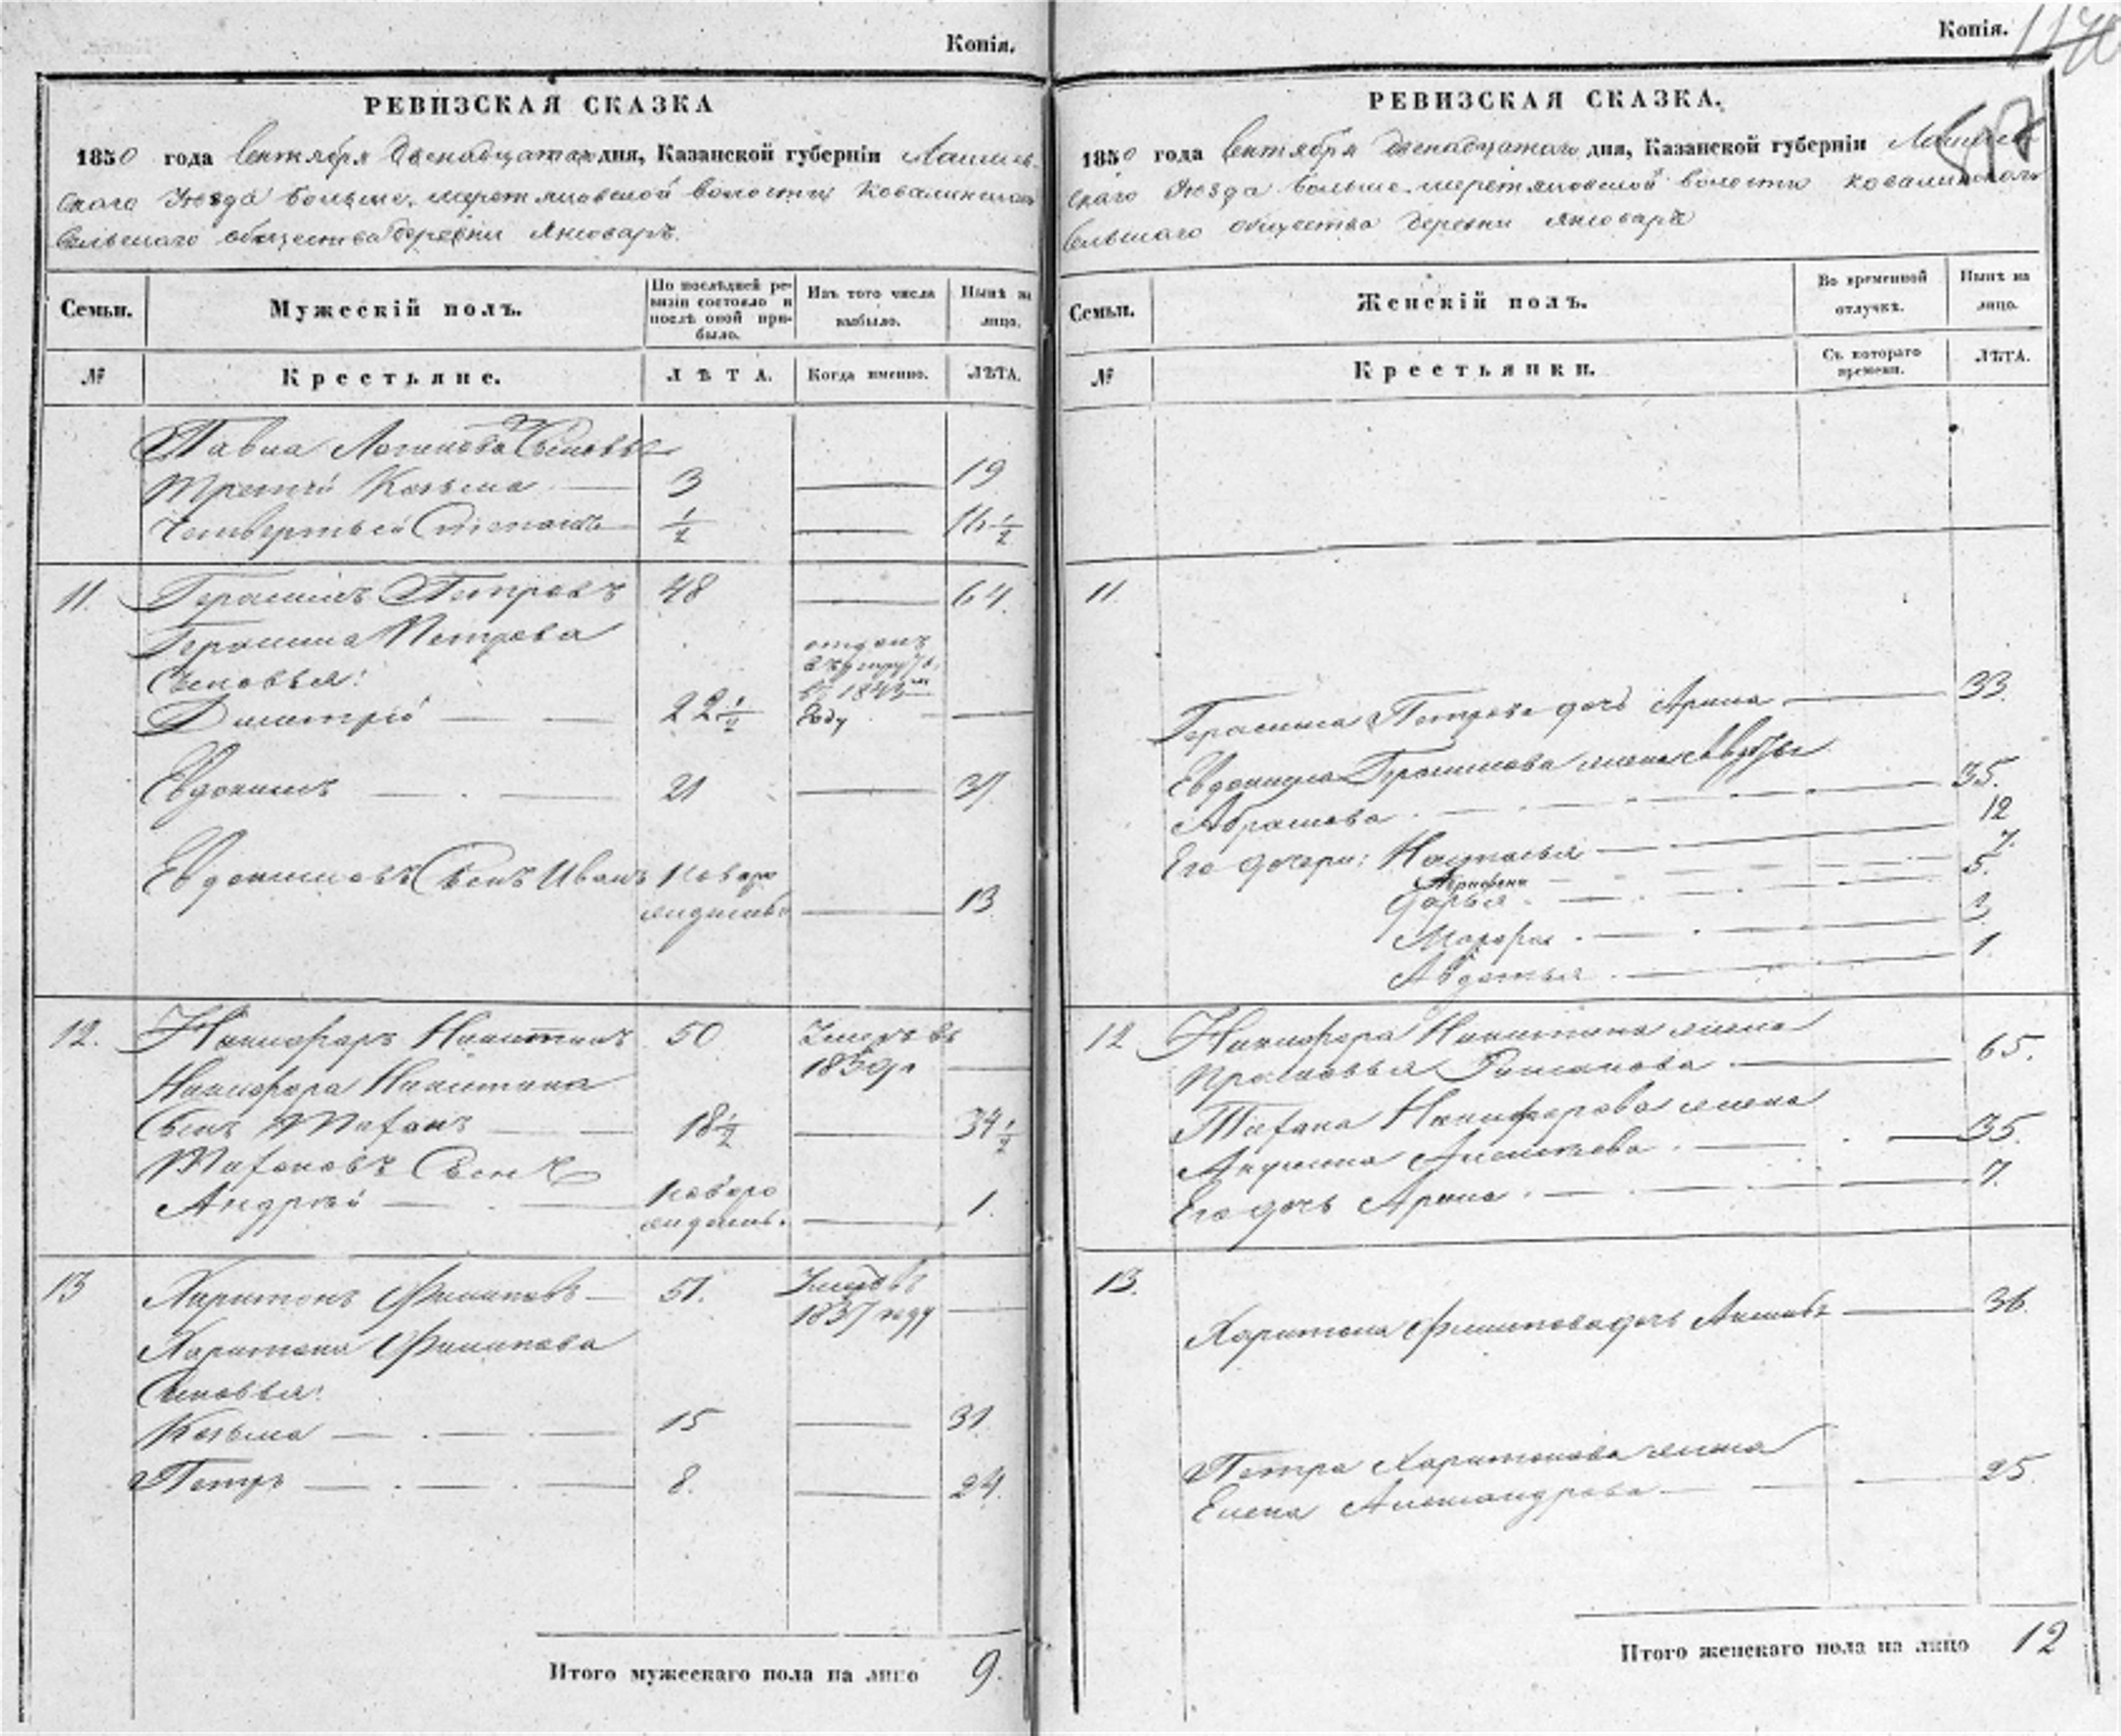 Копія.
РЕВИЗСКАЯ СКАЗКА
1850 года Сентября двенадцатаго дня, Казанской губерніи Лаишев-
скаго Уезда больше-
волости Ковалинскаго
Сельскаго общества деревни Янсоваръ.
Семьи.
Мужескій полъ.
По послѣдней ре-
визіи состояло и
послѣ оной при-
было.
Изъ того числа
выбыло.
Нынѣ на
лицо.
№
Крестьяне.
ЛѢТА.
Когда именно.
ЛѢТА.
Павла Логинова Сыновья
Третій Козьма 3 19
Четвертый 1/2 16 1/2
11. Герасимъ Петровъ 48 64.
Герасима Петрова
Сыновья:
Дмитрій 22 1/2
отданъ
въ рекруты
въ 1843
году
Евдокимъ 21 37.
Евдокимовъ Сынъ Иванъ новоро
жденный 13
12. Никифоръ Никитинъ 50 Умеръ въ
1850
Никифора Никитина
Сынъ 18 1/2 34 1/2
Сынъ
Андрей новоро
жденъ. 1.
13 Харитонъ Филиповъ 51. Умеръ въ
1837 году
Харитона Филипова
Сыновья:
Козьма 15 31
Петръ 8. 24.
Итого мужескаго пола на лицо 9.
Копія.
РЕВИЗСКАЯ СКАЗКА.
1850 года Сентября двенадцатаго дня, Казанской губерніи
скаго Уезда больше-
волости Ковалинскаго
Сельскаго общества деревни Янсоваръ
Семьи.
Женскій полъ.
Во временной
отлучкѣ.
Нынѣ на
лицо.
№
Крестьянки.
Съ котораго
времени.
ЛѢТА.
11.
Герасима Петрова дочь Арина 33.
Евдокима Герасимова жена
Абрамова 35.
Его дочери: Настасья 12
Аграфена 7.
Дарья 5.
Марфа 3
Авдотья 1.
12 Никифора Никитина жена
Прасковья Романова 65.
Никифорова жена
Акулина Алексеева 35.
Его дочь Арина 7.
13.
Харитона Филипова дочь 36
Петра Харитонова жена
Елена Александрова 25
Итого женскаго пола на лицо 12